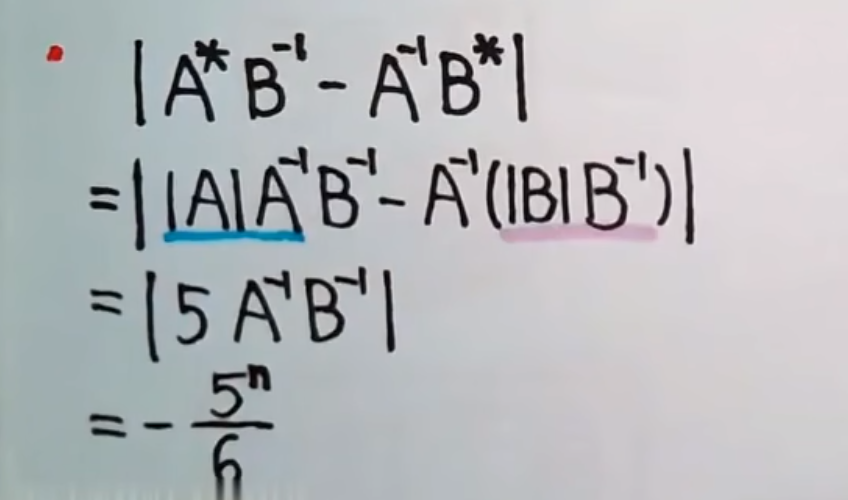 |A*B⁻¹ - A⁻¹B*|
=||A|A⁻¹B⁻¹ - A⁻¹(|B|B⁻¹)|
=|5A⁻¹B⁻¹|
=-5ⁿ/6